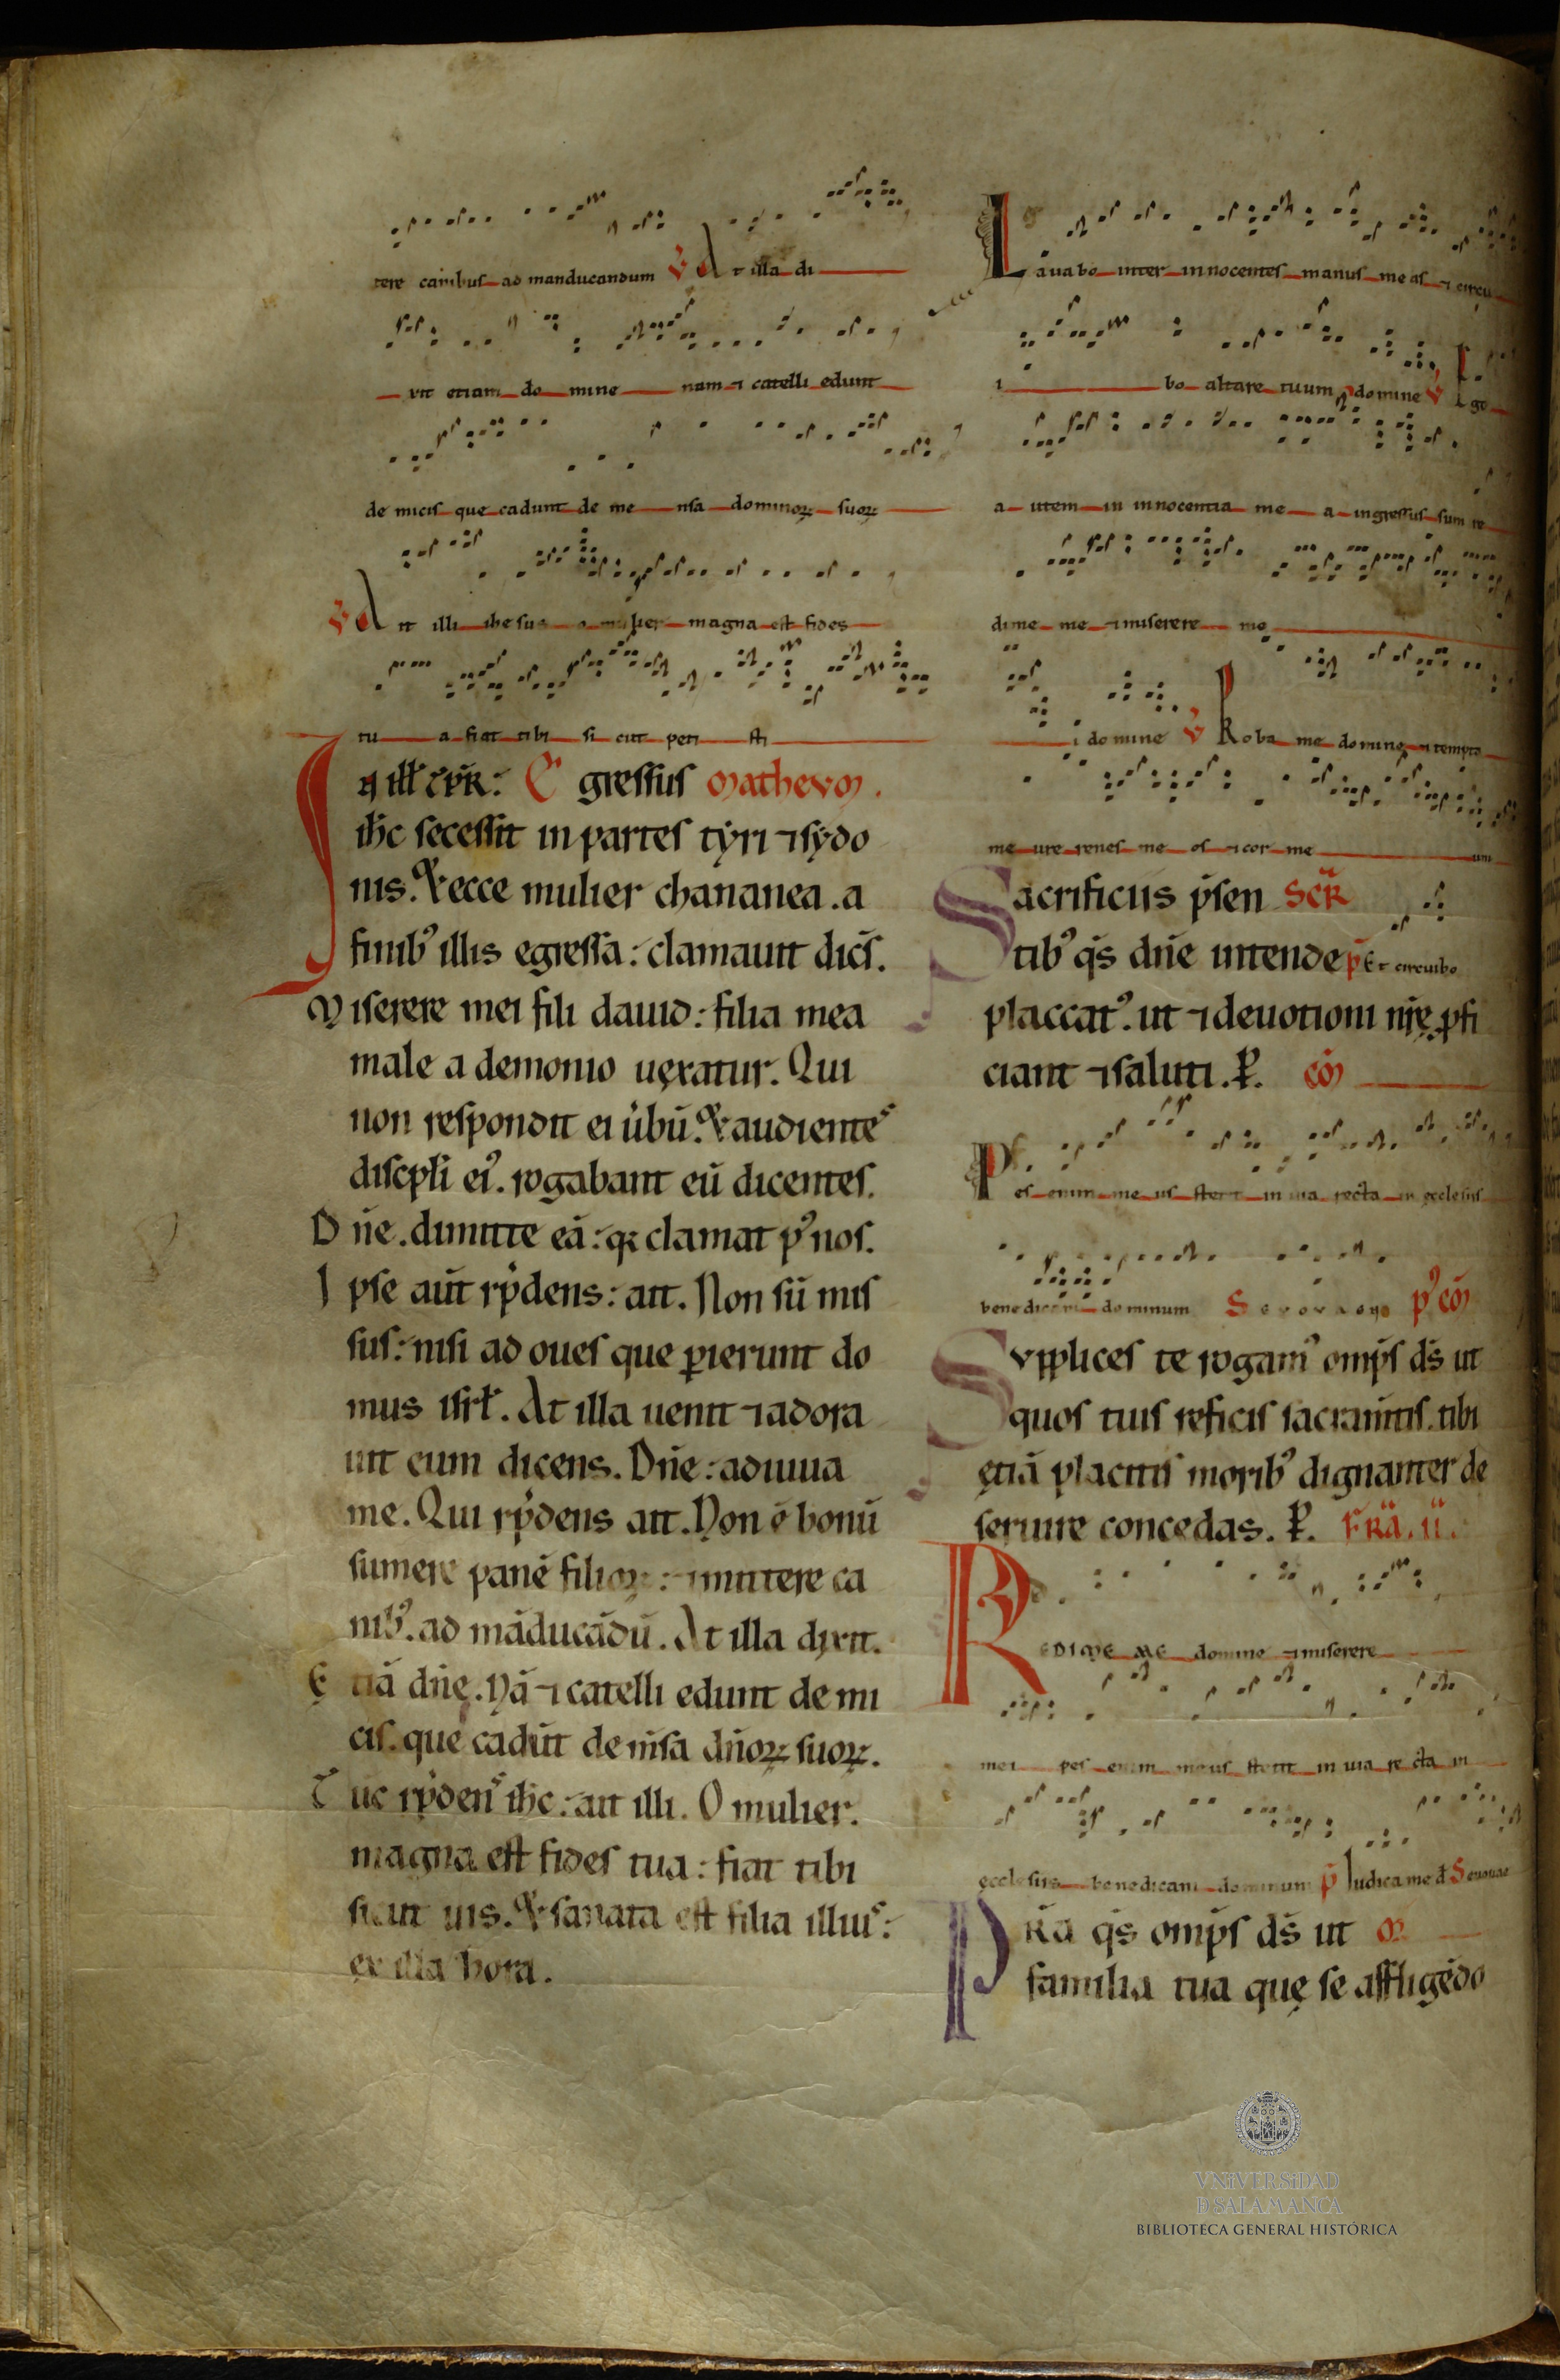 tere canibus ad manducandum V At illa di
xit etiam domine nam ⁊ catelli edunt
de micis que cadunt de mensa dominoꝝ suoꝝ
V Ait illi ihesus o mulier magna est fides
tua fiat tibi sicut petisti
Egressus MATHEVM.
ih̄c secessit in partes tẏri ⁊ sẏdo
nis. & ecce mulier chananea. a
finib᾽ illis egressa: clamauit dic̄s.
Miserere mei fili dauid: filia mea
male a demonio uęxatur. Qui
non respondit ei u̇bū. & audientes
discpli ei᾽. rogabant eū dicentes.
Dn̄e. dimitte eā: qꝛ clamat p᾽ nos.
Ipse aūt rp̄dens: ait. Non sū mis
sus: nisi ad oues que ꝑierunt do
mus isrł. At illa uenit ⁊ adora
uit eum dicens. Dn̄e: adiuua
me. Qui rp̄dens ait. Non ē bonū
sumere panē filioꝝ: ⁊ mittere ca
nib᾽. ad māducādū. At illa dixit.
Etiā dn̄ę. Nā ⁊ catelli edunt de mi
cis. que cadūt de m̄sa dn̄oꝝ suoꝝ.
Tūc rp̄dens ih̄c: ait illi. O mulier.
magna est fides tua: fiat tibi
sicut uis. & sanata est filia illius:
ex illa hora.
Lauabo inter innocentes manus meas ⁊ circu
ibo altare tuum domine V Ego
autem in innocentia mea ingressus sum re
dime me ⁊ miserere me
i domine V Proba me domine ⁊ tempta
me ure renes meos ⁊ cor meum
Sacrificiis p̄sen SCR̄
tib᾽ q̄s dn̄e intende p̄ Et circuibo
placcat᾽. ut ⁊ deuotioni nr̄ę ꝓfi
ciant ⁊ saluti. P̄. CŌM
Pes enim meus stetit in uia recta in ecclesiis
benedicam dominum SEVOVAEM p᾽ CŌM
Supplices te rogam᾽ omp̄s ds̄ ut
quos tuis reficis sacram̄tis. tibi
ętiā placitis morib᾽ dignanter de
seruire concedas. P̄. FR̄Ā. II.
REDIME ME domine ⁊ miserere
mei pes enim meus stetit in uia recta in
ęcclesiis benedicam dominum p̄ Iudica me d̄ Seuouae
PR̄a q̄s omp̄s ds̄ ut
familia tua quę se affligēdo
VNIVERSIDAD
D SALAMANCA
BIBLIOTECA GENERAL HISTÓRICA